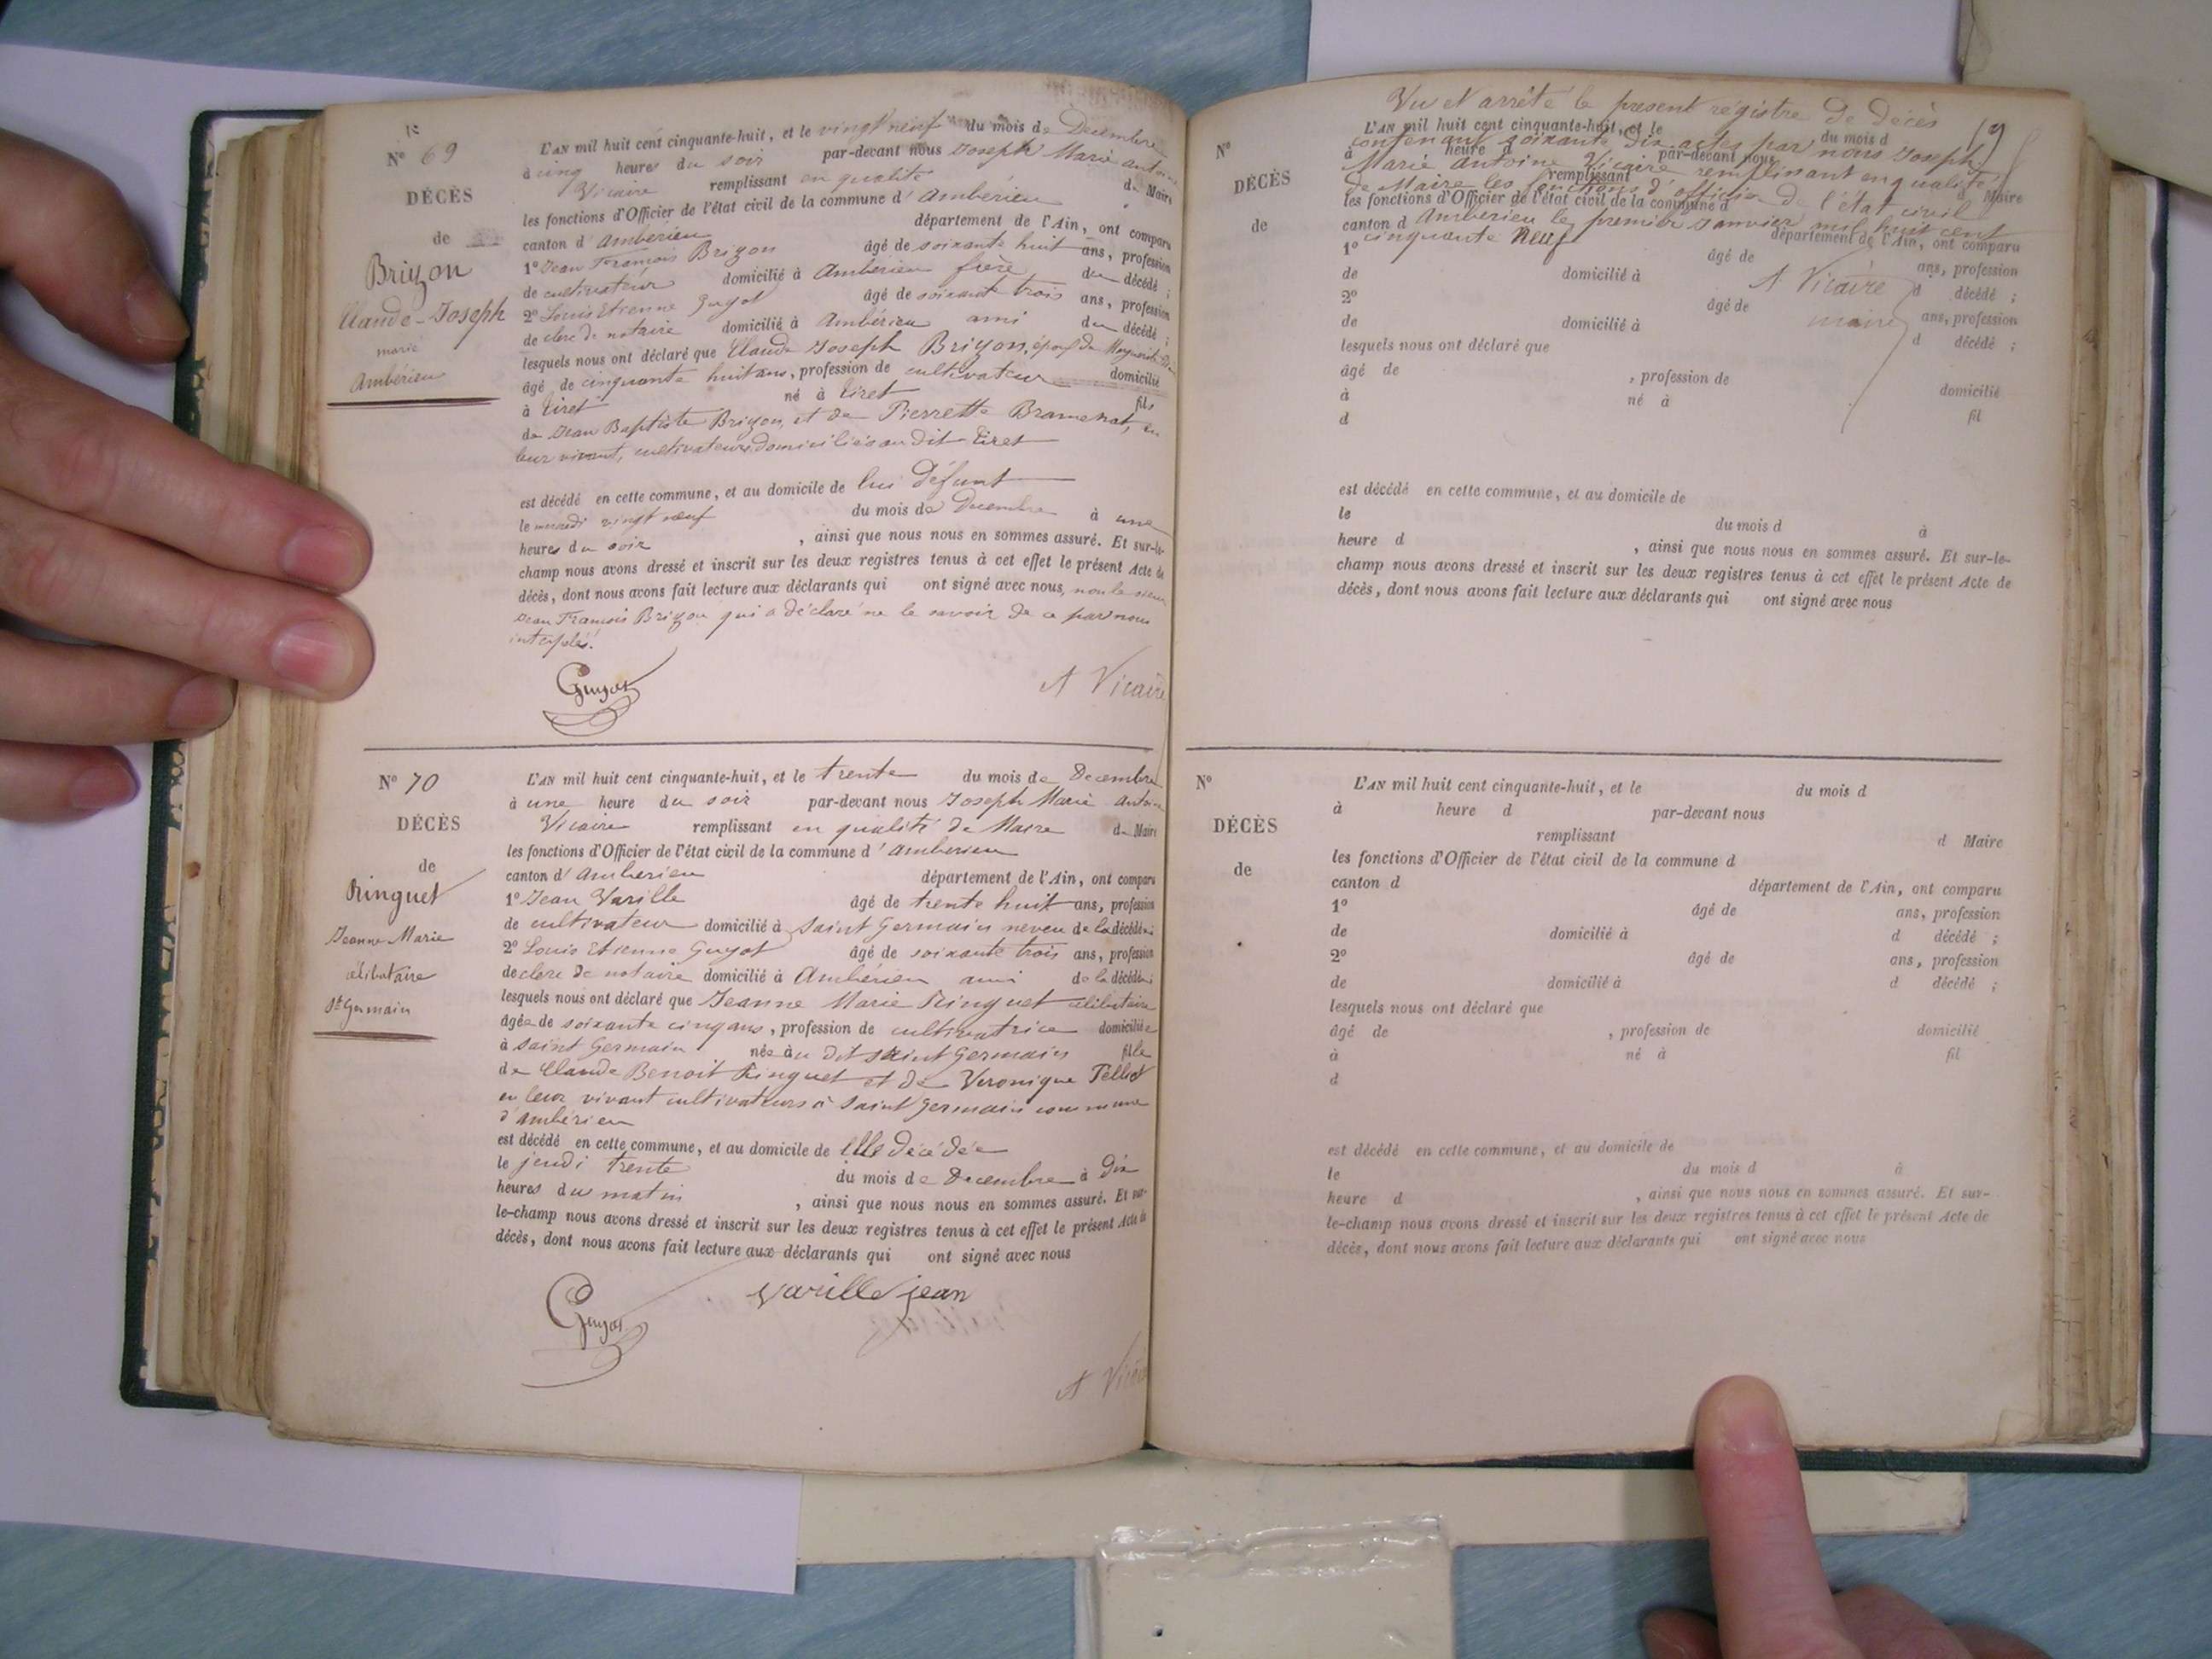 N° 69
DÉCÈS
de
Brizon
Claude-Joseph
marié
Ambérieu
L'AN mil huit cent cinquante-huit, et le vingt neuf du mois de Decembre
à cinq heures du soir par-devant nous Joseph Marie antoine
Vicaire remplissant en qualité de Maire
les fonctions d'Officier de l'état civil de la commune d'Ambérieu
canton d'ambérieu département de l'Ain, ont comparu
1° Jean François Brizon âgé de soixante huit ans, profession
de cultivateur domicilié à Ambérieu frère du décédé ;
2° Louis Etienne Guyot âgé de soixante trois ans, profession
de clerc de notaire domicilié à Ambérieu ami du décédé ;
lesquels nous ont déclaré que Claude Joseph Brizon, époux de Marguerite
âgé de cinquante huit ans, profession de cultivateur domicilié
à Tiret né à Tiret fils
de Jean Baptiste Brizon, et de Pierrette Bramerat, en
leur vivant, cultivateurs domiciliés au dit Tiret
est décédé en cette commune, et au domicile de lui défunt
le mercredi vingt neuf du mois de Decembre à une
heures du soir , ainsi que nous nous en sommes assuré. Et sur-le-
champ nous avons dressé et inscrit sur les deux registres tenus à cet effet le présent Acte de
décès, dont nous avons fait lecture aux déclarants qui ont signé avec nous, non le sieur
Jean François Brizon qui a déclaré ne le savoir de ce par nous
interpelé.
Guyot
A Vicaire
N° 70
DÉCÈS
de
Ringuet
Jeanne Marie
célibataire
St Germain
L'AN mil huit cent cinquante-huit, et le trente du mois de Decembre
à une heure du soir par-devant nous Joseph Marie Antoine
Vicaire remplissant en qualité de Maire de Maire
les fonctions d'Officier de l'état civil de la commune d'ambérieu
canton d'ambérieu département de l'Ain, ont comparu
1° Jean Varille âgé de trente huit ans, profession
de cultivateur domicilié à Saint Germain neveu de la décédée ;
2° Louis Etienne Guyot âgé de soixante trois ans, profession
de clerc de notaire domicilié à Ambérieu ami de la décédée ;
lesquels nous ont déclaré que Jeanne Marie Ringuet célibataire
âgée de soixante cinq ans, profession de cultivatrice domiciliée
à Saint Germain née au dit Saint Germain fille
de Claude Benoit Ringuet et de Veronique Telliet
en leur vivant cultivateurs à Saint Germain commune
d'ambérieu
est décédé en cette commune, et au domicile de elle décédée
le jeudi trente du mois de Decembre à dix
heures du matin , ainsi que nous nous en sommes assuré. Et sur-
le-champ nous avons dressé et inscrit sur les deux registres tenus à cet effet le présent Acte de
décès, dont nous avons fait lecture aux déclarants qui ont signé avec nous
Guyot
Varille jean
A Vicaire
Vu et arrêté le present régistre de Décès
contenant soixante dix actes par nous Joseph
Marie Antoine Vicaire remplissant en qualité
de Maire les fonctions d'officier de l'état civil
d'Ambérieu le premier Janvier mil huit cent
cinquante Neuf
A Vicaire
maire
19
N°
DÉCÈS
de
L'AN mil huit cent cinquante-huit, et le du mois d
à heure d par-devant nous
remplissant d Maire
les fonctions d'Officier de l'état civil de la commune d
canton d département de l'Ain, ont comparu
1° âgé de ans, profession
de domicilié à d décédé ;
2° âgé de ans, profession
de domicilié à d décédé ;
lesquels nous ont déclaré que
âgé de , profession de domicilié
à né à fil
d
est décédé en cette commune, et au domicile de
le du mois d à
heure d , ainsi que nous nous en sommes assuré. Et sur-le-
champ nous avons dressé et inscrit sur les deux registres tenus à cet effet le présent Acte de
décès, dont nous avons fait lecture aux déclarants qui ont signé avec nous
N°
DÉCÈS
de
L'AN mil huit cent cinquante-huit, et le du mois d
à heure d par-devant nous
remplissant d Maire
les fonctions d'Officier de l'état civil de la commune d
canton d département de l'Ain, ont comparu
1° âgé de ans, profession
de domicilié à d décédé ;
2° âgé de ans, profession
de domicilié à d décédé ;
lesquels nous ont déclaré que
âgé de , profession de domicilié
à né à fil
d
est décédé en cette commune, et au domicile de
le du mois d à
heure d , ainsi que nous nous en sommes assuré. Et sur-
le-champ nous avons dressé et inscrit sur les deux registres tenus à cet effet le présent Acte de
décès, dont nous avons fait lecture aux déclarants qui ont signé avec nous